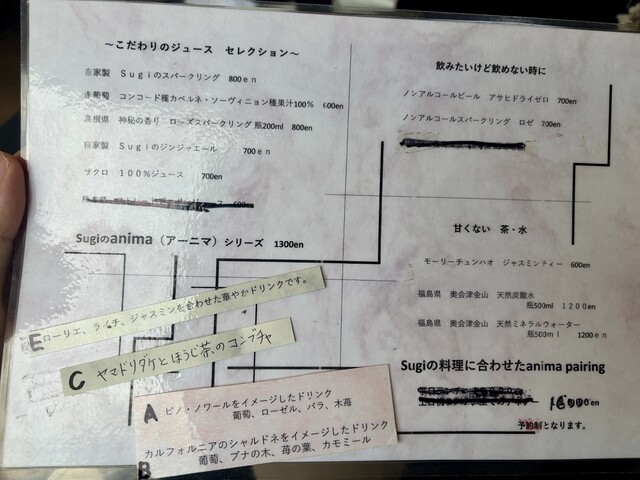 ～こだわりのジュース　セレクション～
自家製　Ｓｕｇｉのスパークリング　800ｅｎ
赤葡萄　コンコード種カベルネ・ソーヴィニョン種果汁100％　600en
島根県　神秘の香り　ローズスパークリング 瓶200ml　800en
自家製　Ｓｕｇｉのジンジャエール　700ｅｎ
ザクロ　１００％ジュース　700en
Sugiのanima（アーニマ）シリーズ　1300en
E ローリエ、ライチ、ジャスミンを合わせた華やかドリンクです。
C ヤマドリダケとほうじ茶のコンブチャ
A ピノ・ノワールをイメージしたドリンク
葡萄、ローゼル、バラ、木苺
カルフォルニアのシャルドネをイメージしたドリンク
B 葡萄、ブナの木、苺の葉、カモミール
飲みたいけど飲めない時に
ノンアルコールビール　アサヒドライゼロ　700en
ノンアルコールスパークリング　ロゼ　700en
甘くない　茶・水
モーリーチュンハオ　ジャスミンティー　600en
福島県　奥会津金山　天然炭酸水
瓶500ml　１２００en
福島県　奥会津金山　天然ミネラルウォーター
瓶500ｍｌ　１２００en
Sugiの料理に合わせたanima pairing
en
予約制となります。